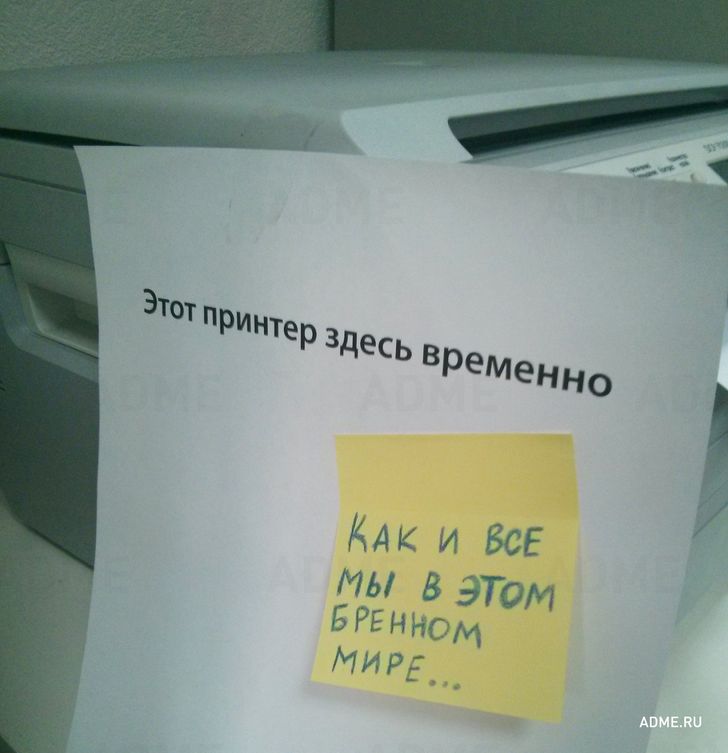 Этот принтер здесь временно
КАК И ВСЕ
МЫ В ЭТОМ
БРЕННОМ
МИРЕ...
ADME.RU